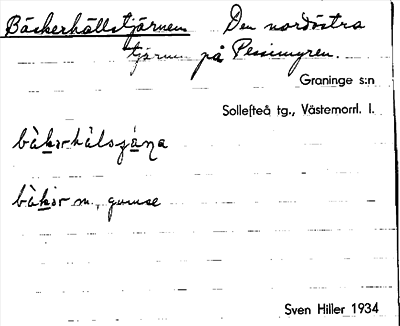 Bäckerhällstjärnen Den nordöstra
tjärnen på Pessimyren.
Graninge s:n
Sollefteå tg., Västernorrl. l.
bäkor m., gumse
Sven Hiller 1934